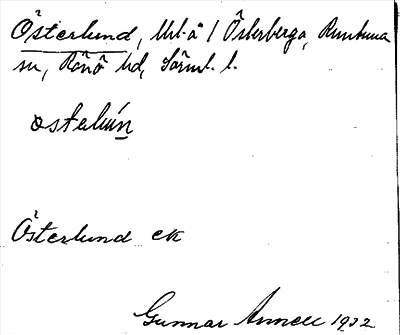 Österlund, Utl. å / Österberga, Runtuna
sn, Rönö hd, Sörml. l.
østerlún
Österlund ek
Gunnar Annell 1932